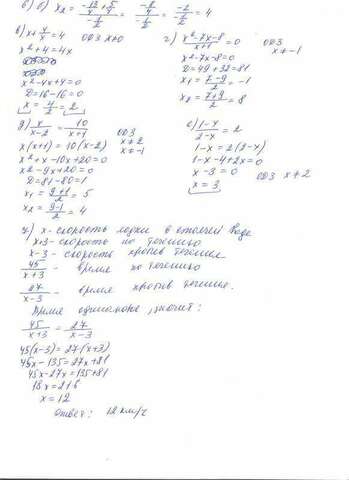 б) б) x₂ = (-13/4 + 5/4)/(-1/2) = (-8/4)/(-1/2) = -2/(-1/2) = 4
в) x + 4/x = 4 ОДЗ x≠0
x² + 4 = 4x
x² - 4x + 4 = 0
D = 16 - 16 = 0
x = 4/2 = 2
г) (x² - 7x - 8)/(x+1) = 0 ОДЗ x ≠ -1
x² - 7x - 8 = 0
D = 49 + 32 = 81
x₁ = (7-9)/2 = -1
x₂ = (7+9)/2 = 8
д) x/(x-2) = 10/(x+1) ОДЗ x ≠ 2 x ≠ -1
x(x+1) = 10(x-2)
x² + x - 10x + 20 = 0
x² - 9x + 20 = 0
D = 81 - 80 = 1
x₁ = (9+1)/2 = 5
x₂ = (9-1)/2 = 4
е) (1-x)/(2-x) = 2
1-x = 2(2-x)
1 - x - 4 + 2x = 0
x - 3 = 0 ОДЗ x ≠ 2
x = 3
x - скорость лодки в стоячей воде
x+3 - скорость по течению
x-3 - скорость против течения
45/(x+3) - время по течению
27/(x-3) - время против течения.
Время одинаково, значит:
45/(x+3) = 27/(x-3)
45(x-3) = 27·(x+3)
45x - 135 = 27x + 81
45x - 27x = 135 + 81
18x = 216
x = 12
Ответ: 12 км/ч